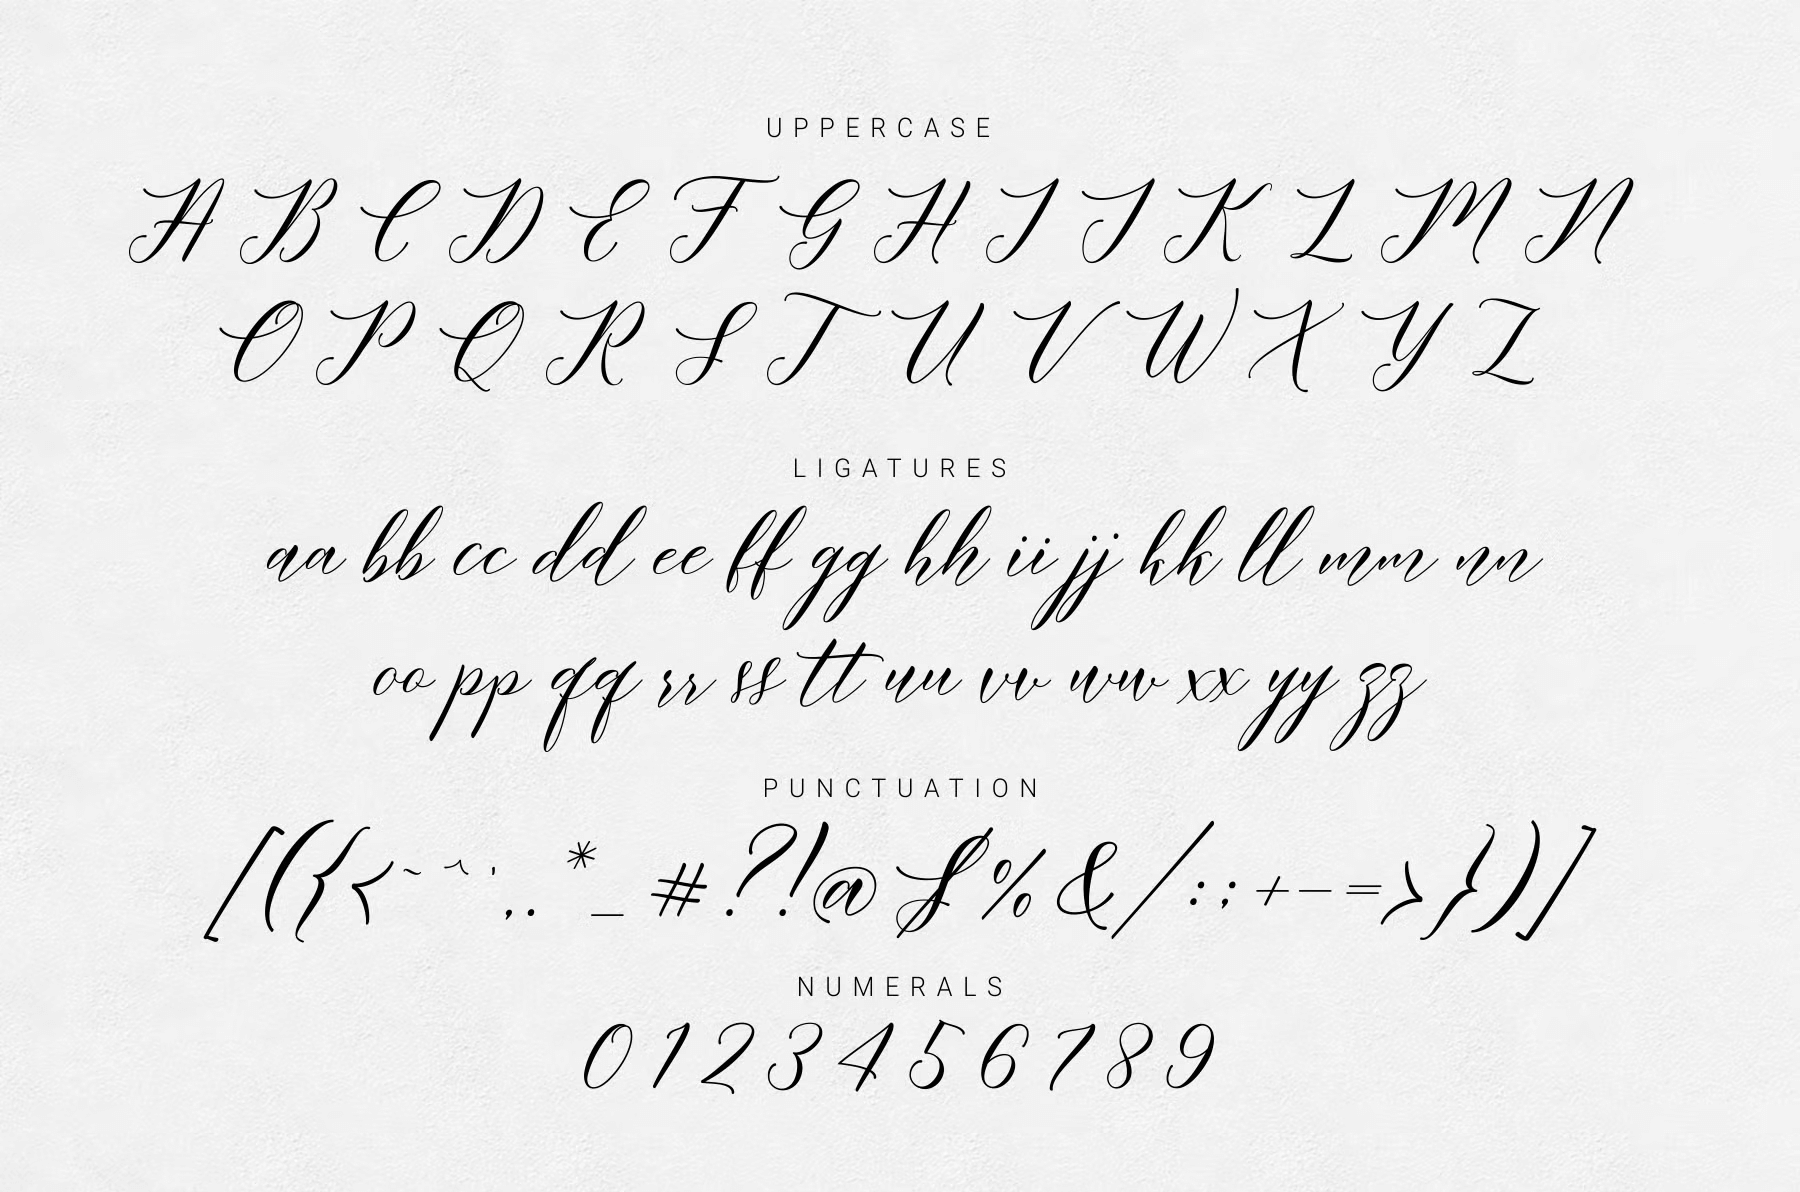 UPPERCASE
A B C D E F G H I J K L M N
O P Q R S T U V W X Y Z
LIGATURES
aa bb cc dd ee ff gg hh ii jj kk ll mm nn
oo pp qq rr ss tt uu vv ww xx yy zz
PUNCTUATION
[ ( { < ~ ^ ' , . * _ # ? ! @ $ % & / : ; + - = > } ) ]
NUMERALS
0 1 2 3 4 5 6 7 8 9